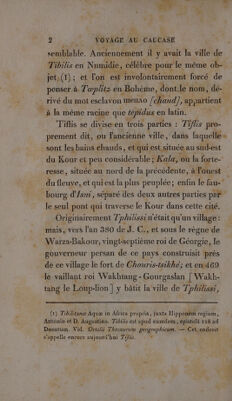 2 VOYAGE AU CAUCASE
semblable. Anciennement il y avait la ville de
Tibilis en Numidie, célèbre pour le même ob-
jet (1); et l'on est involontairement forcé de
penser à Tœplitz en Bohème, dont le nom, dé-
rivé du mot esclavon тепло (chaud), appartient
à la même racine que tepidus en latin.
Tiflis se divise en trois parties : Tiflis pro-
prement dit, ou l'ancienne ville, dans laquelle
sont les bains chauds, et qui est située au sud-est
du Kour et peu considérable; Kala, ou la forte-
resse, située au nord de la précédente, à l'ouest
du fleuve, et qui est la plus peuplée; enfin le fau-
bourg d'Isni, séparé des deux autres parties par
le seul pont qui traverse le Kour dans cette cité.
Originairement Tphilissi n'était qu'un village:
mais, vers l'an 380 de J. C., et sous le règne de
Warza-Bakour, vingt-septième roi de Géorgie, le
gouverneur persan de ce pays construisit près
de ce village le fort de Chouris-tsikhé; et en 469
le vaillant roi Wakhtang-Gourgaslan [Wakh-
tang le Loup-lion] y bâtit la ville de Tphilissi,
(1) Tibilitanæ Aquæ in Africa propria, juxta Hipponem regium,
Antonio et D. Augustino. Tibilis est apud eumdem, epistolâ 128 ad
Donatum. Vid. Ortelii Thesaurum geographicum. — Cet endroit
s'appelle encore aujourd'hui Tifis.